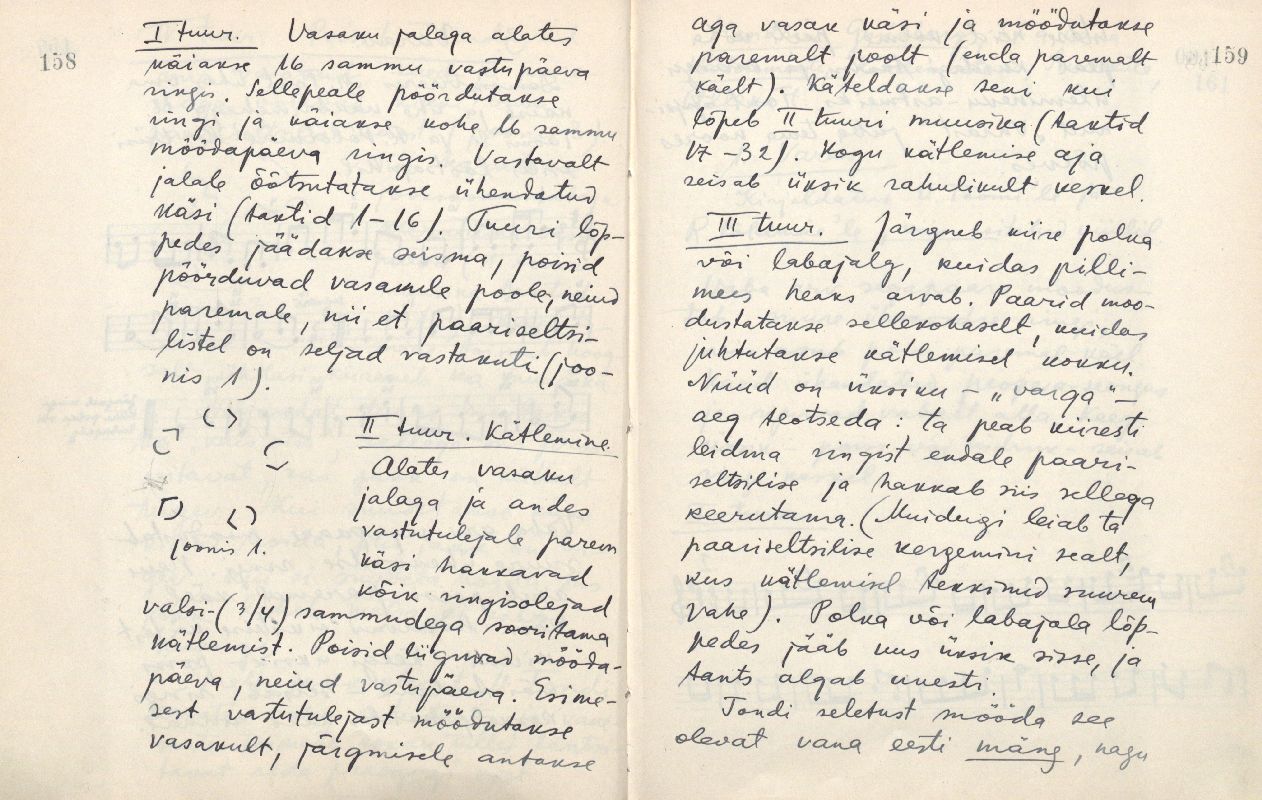 158
I tuur. Vasaku jalaga alates
käiakse 16 sammu vastupäeva
ringis. Sellepeale pöördutakse
ringi ja käiakse kohe 16 sammu
möödapäeva ringis. Vastavalt
jalale õõtsutatakse ühendatud
käsi (taktid 1-16). Tuuri lõp-
pedes jäädakse seisma, poisid
pöörduvad vasakule poole, neiud
paremale, nii et paariseltsi-
listel on seljad vastakuti (joo-
nis 1).
II tuur. Kätlemine.
Alates vasaku
jalaga ja andes
vastutulejale parem
käsi hakkavad
kõik ringisolejad
joonis 1.
valsi-(3/4) sammudega sooritama
kätlemist. Poisid liiguvad mööda-
päeva, neiud vastupäeva. Esime-
sest vastutulejast möödutakse
vasakult, järgmisele antakse
159
161
aga vasak käsi ja möödutakse
paremalt poolt (enda paremalt
käelt). Käteldakse seni kui
lõpeb II tuuri muusika (taktid
17-32). Kogu kätlemise aja
seisab üksik rahulikult keskel.
III tuur. Järgneb kiire polka
või labajalg, kuidas pilli-
mees heaks arvab. Paarid moo-
dustatakse sellekohaselt, kuidas
juhtutakse kätlemisel kokku.
Nüüd on üksiku - „varga" -
aeg teotseda: ta peab kiiresti
leidma ringist endale paari-
seltsilise ja hakkab siis sellega
keerutama. (Muidugi leiab ta
paariseltsilise kergemini sealt,
kus kätlemisel tekkinud suurem
vahe). Polka või labajala lõp-
pedes jääb uus üksik sisse, ja
tants algab uuesti.
Tondi seletust mööda see
olevat vana eesti mäng, nagu